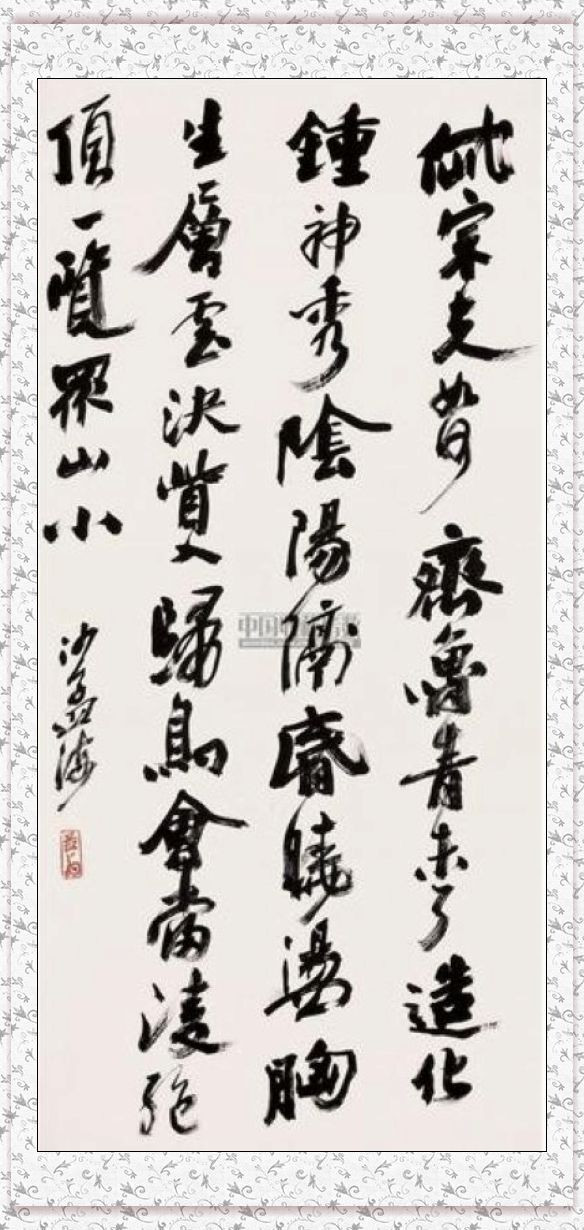 岱宗夫如何齊魯青未了造化
鍾神秀陰陽隔昬曉盪胸
生層雲決眥入歸鳥會當淩絕
頂一覽眾山小
沙孟海